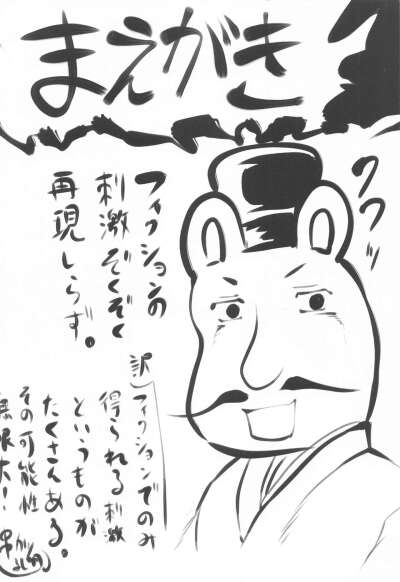 まえがき
クワッ
フィクションの
刺激ぞくぞく
再現しらず。
訳)フィクションでのみ
得られる刺激
というものが
たくさんある。
その可能性
無限大!